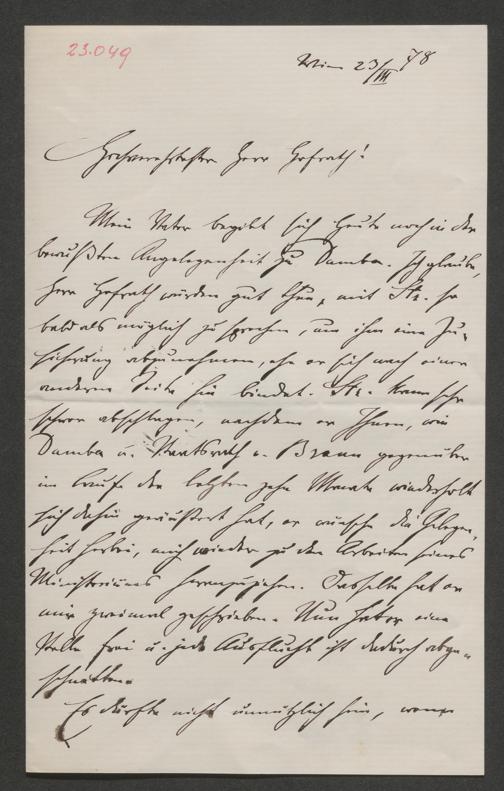 23.049
Wien 23/III 78
Hochverehrtester Herr Hofrath!
Mein Vater begibt sich heute noch in der
bewußten Angelegenheit zu Dumba. Ich glaube,
Herr Hofrath würden gut thun, mit Str. so
bald als möglich zu sprechen, um ihm eine Zu-
sicherung abzunehmen, ehe er sich nach einer
anderen Seite hin bindet. Str. kann sehr
schwer abschlagen, nachdem er Ihnen, wie
Dumba u. Staatsrath v. Braun gegenüber
im Laufe der letzten zehn Monate wiederholt
sich dahin geäußert hat, er wünsche die Gelegen-
heit herbei, mich wieder zu den Arbeiten seines
Ministeriums heranzuziehen. Dasselbe hat er
mir zweimal geschrieben. Nun hat er eine
Stelle frei u. jede Ausflucht ist dadurch abge-
schnitten.
Es dürfte nicht unnützlich sein, wenn